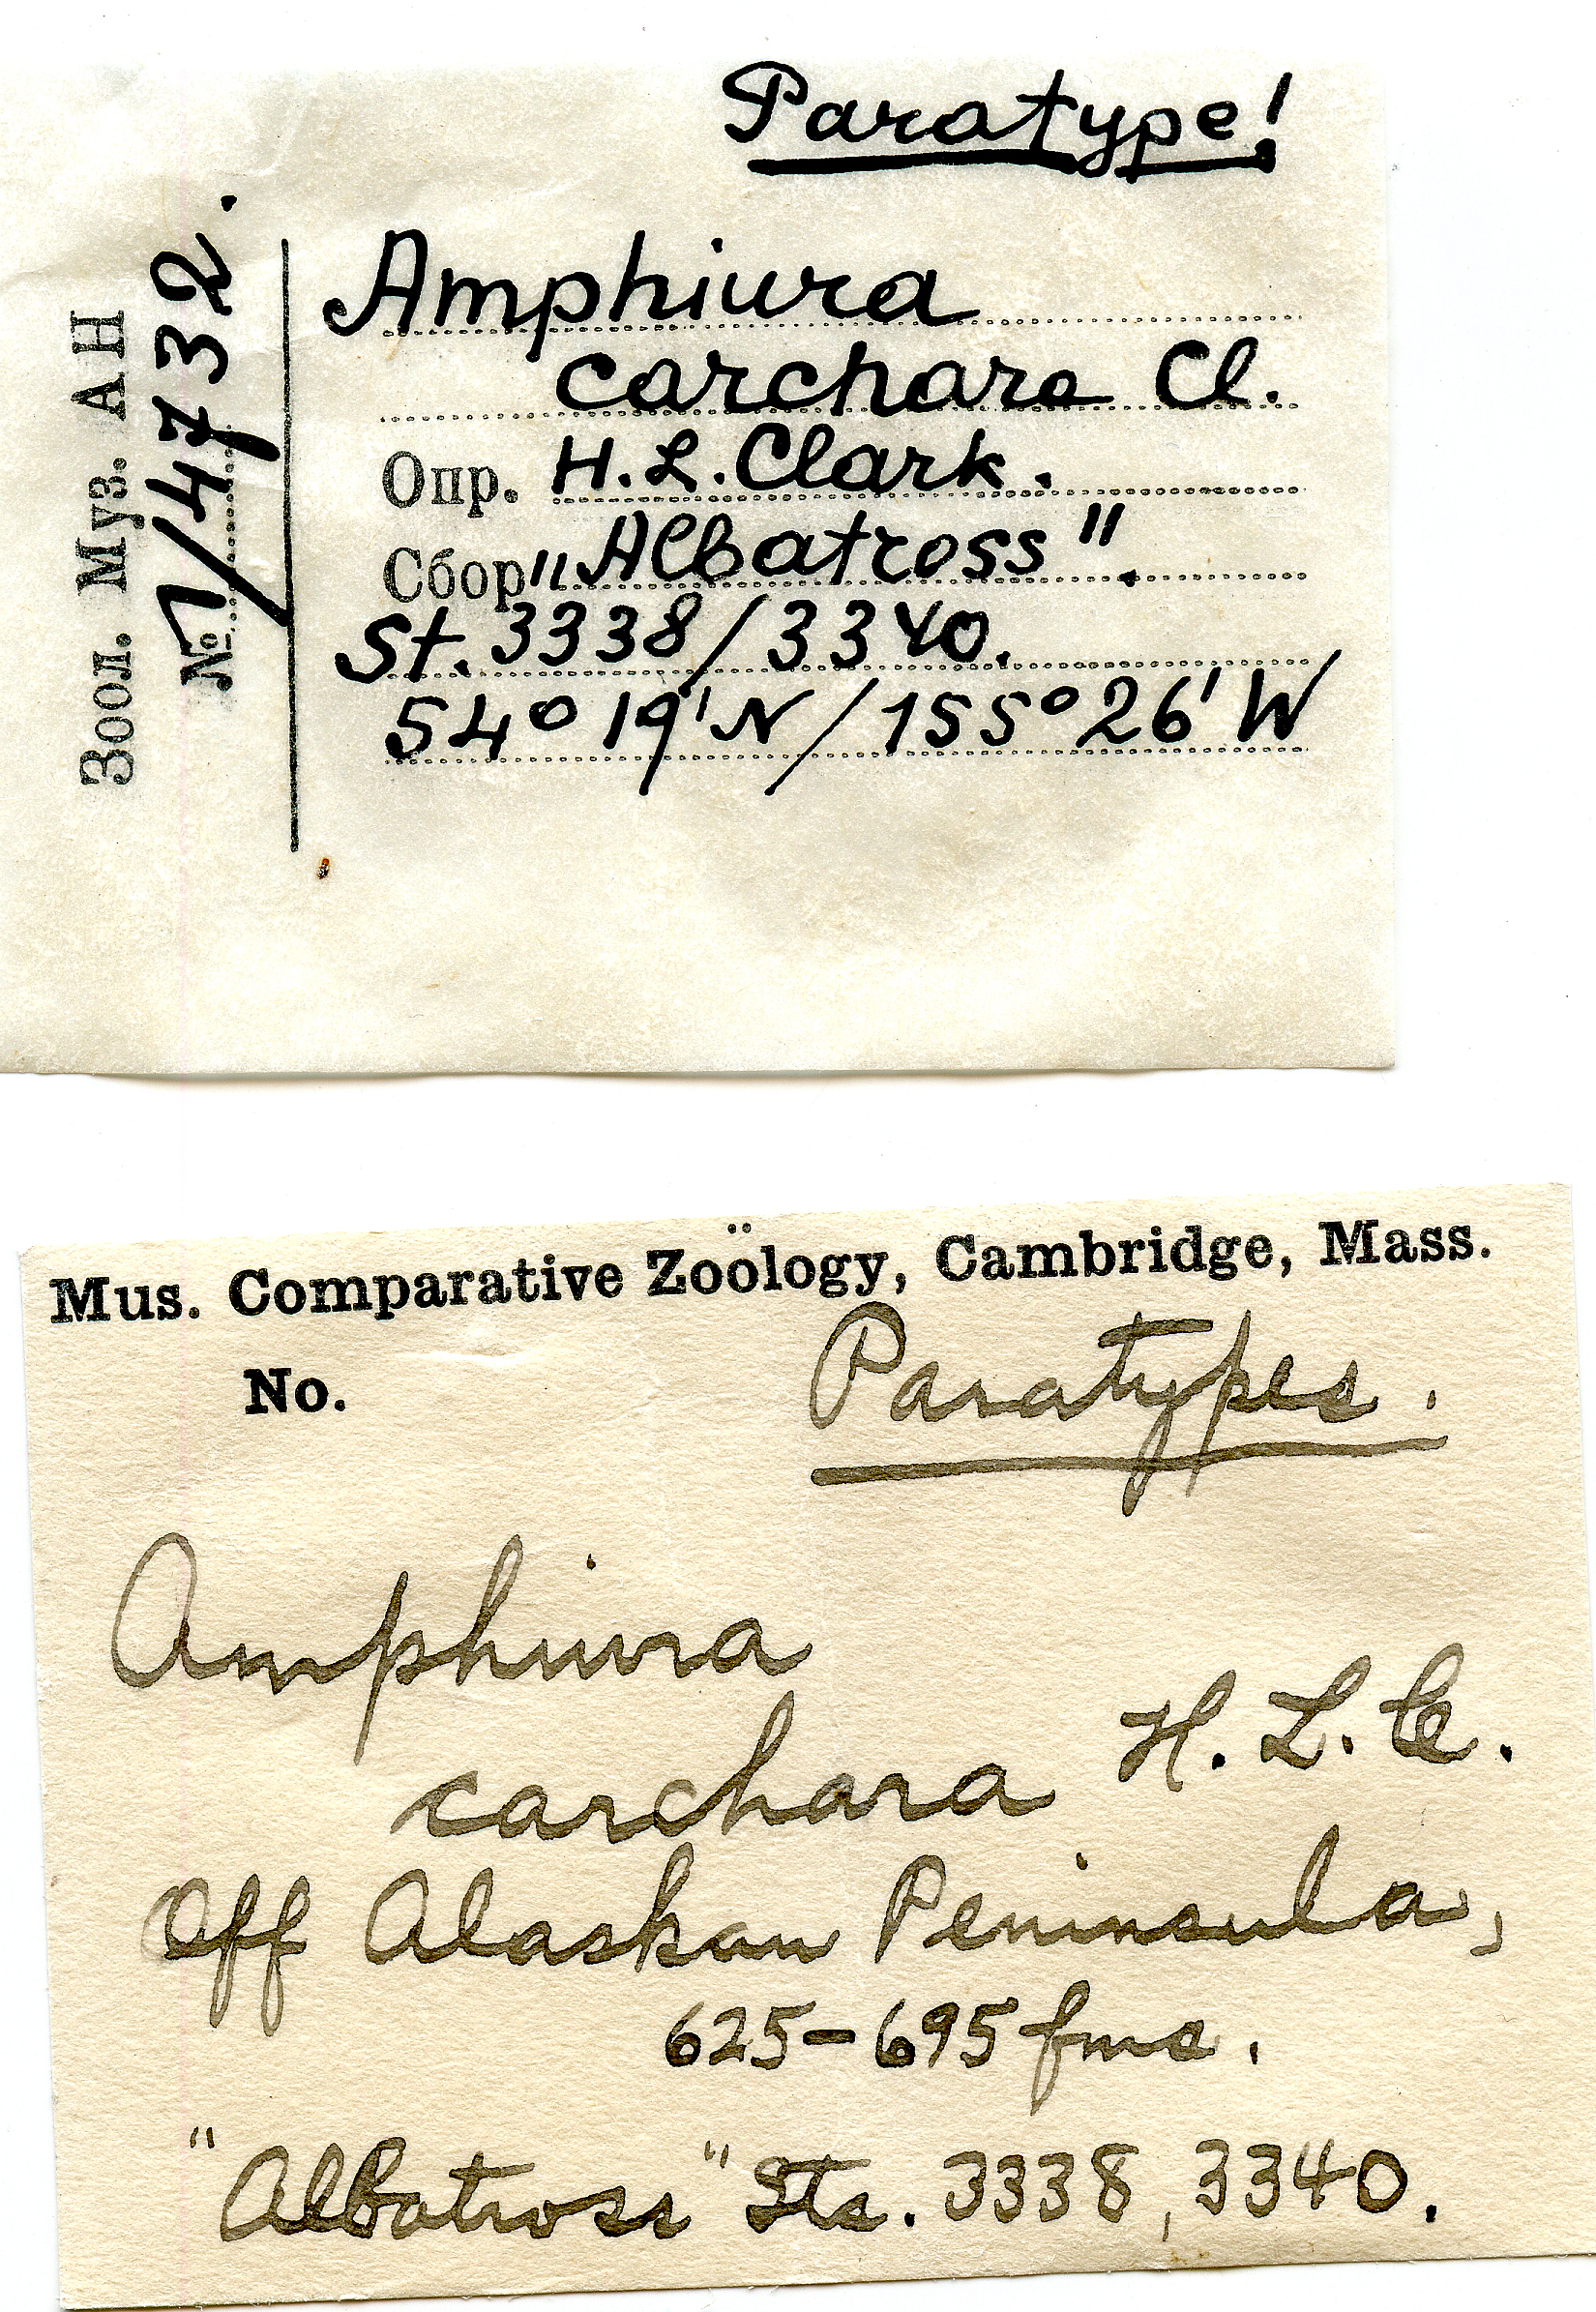 Paratype!
Зоол. Муз. АН
№ 1/14732.
Amphiura
carchara Cl.
Опр. H.L.Clark.
Сбор "Albatross".
St. 3338/3340.
54° 19' N/155° 26' W
Mus. Comparative Zoölogy, Cambridge, Mass.
No.
Paratypes.
Amphiura
carchara H. L. C.
Off Alaskan Peninsula,
625-695 fms.
"Albatross" Sts. 3338, 3340.